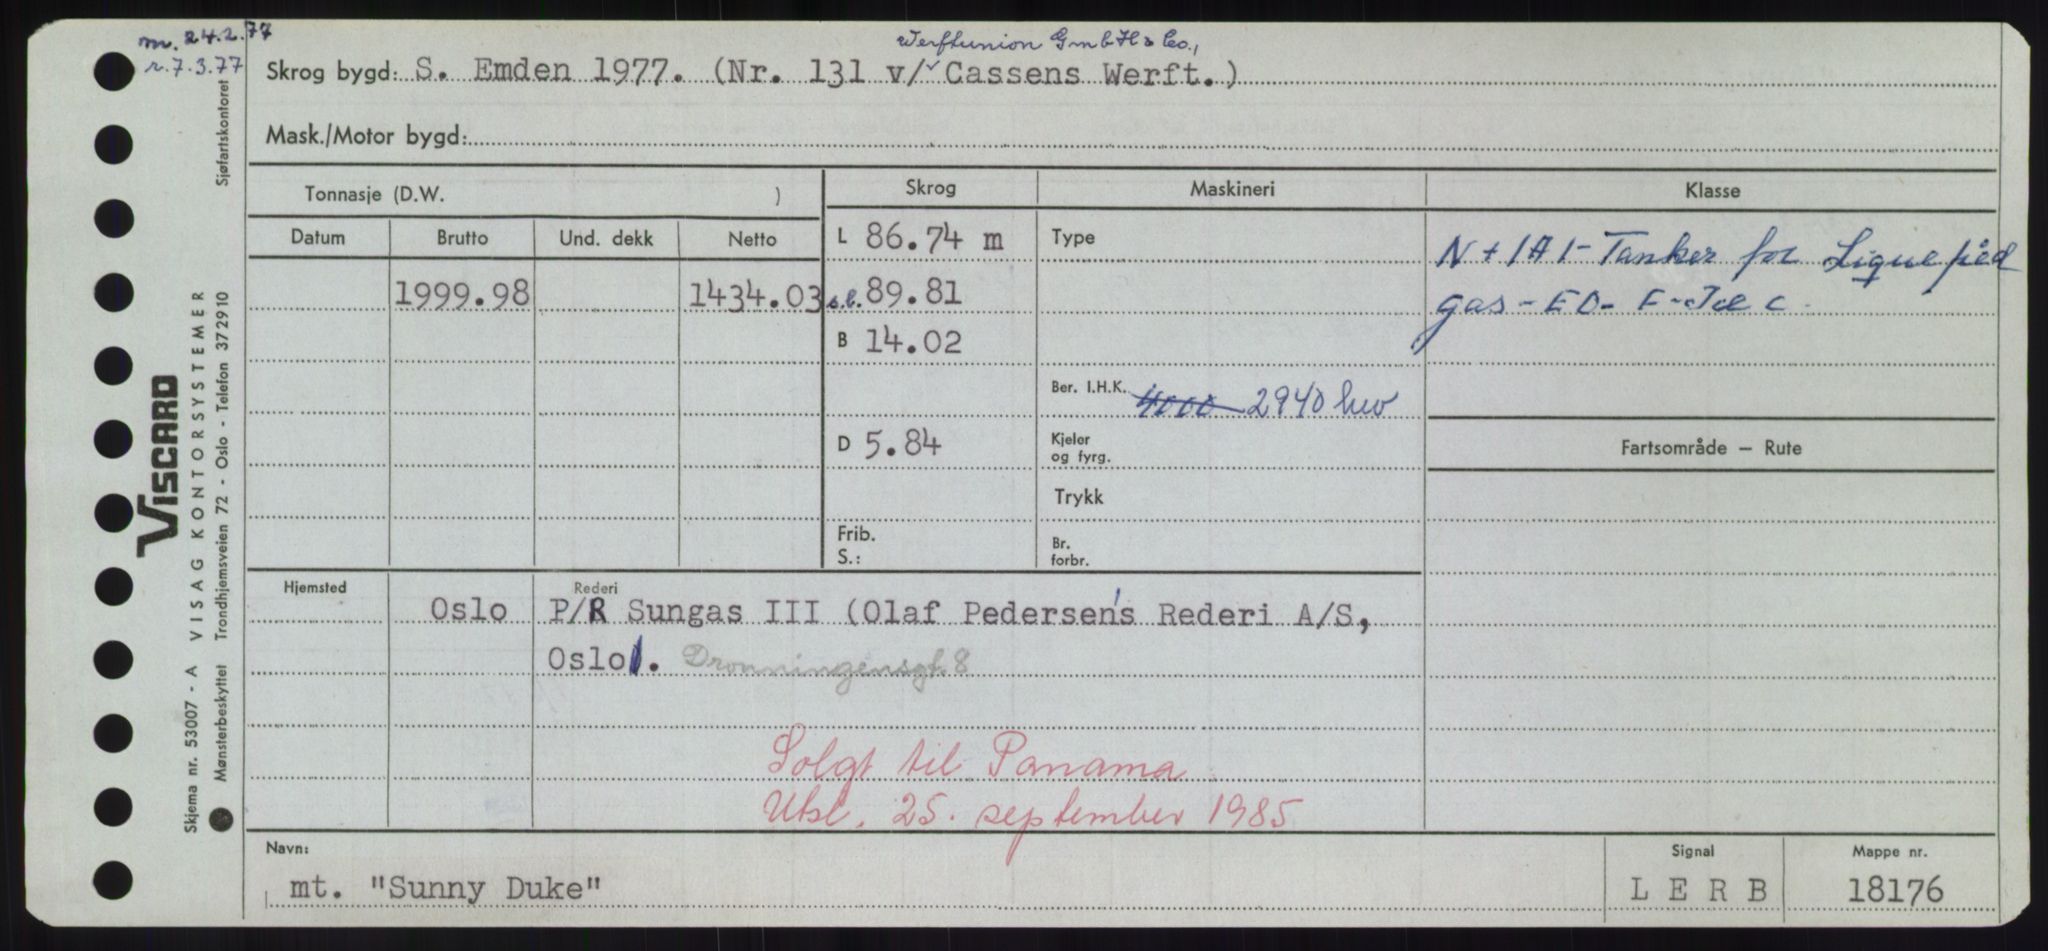 m. 24.2.77
r. 7.3.77
Werftunion GmbH & Co.,
Skrog bygd: S. Emden 1977. (Nr. 131 v/ Cassens Werft.)
Mask./Motor bygd:
Tonnasje (D.W. )
Skrog
Maskineri
Klasse
Datum Brutto Und. dekk Netto
L 86.74 m
Type
N + 1A1 - Tanker for Liquefied
1999.98 1434.03 s.l. 89.81
gas - EO - F -
B 14.02
Ber. I.H.K. 4000 2940 kw
D 5.84
Kjeler
og fyrg.
Fartsområde — Rute
Trykk
Frib.
S.:
Br.
forbr.
Hjemsted
Rederi
Oslo P/R Sungas III (Olaf Pedersen's Rederi A/S,
Oslo 1. Dronningensgt. 8
Solgt til Panama
Utsl. 25. september 1985
Navn:
Signal
Mappe nr.
mt. "Sunny Duke" L E R B 18176
VISCARD
Skjema nr. 53007 - A VISAG KONTORSYSTEMER
Mønsterbeskyttet Trondhjemsveien 72 - Oslo - Telefon 372910 Sjøfartskontoret